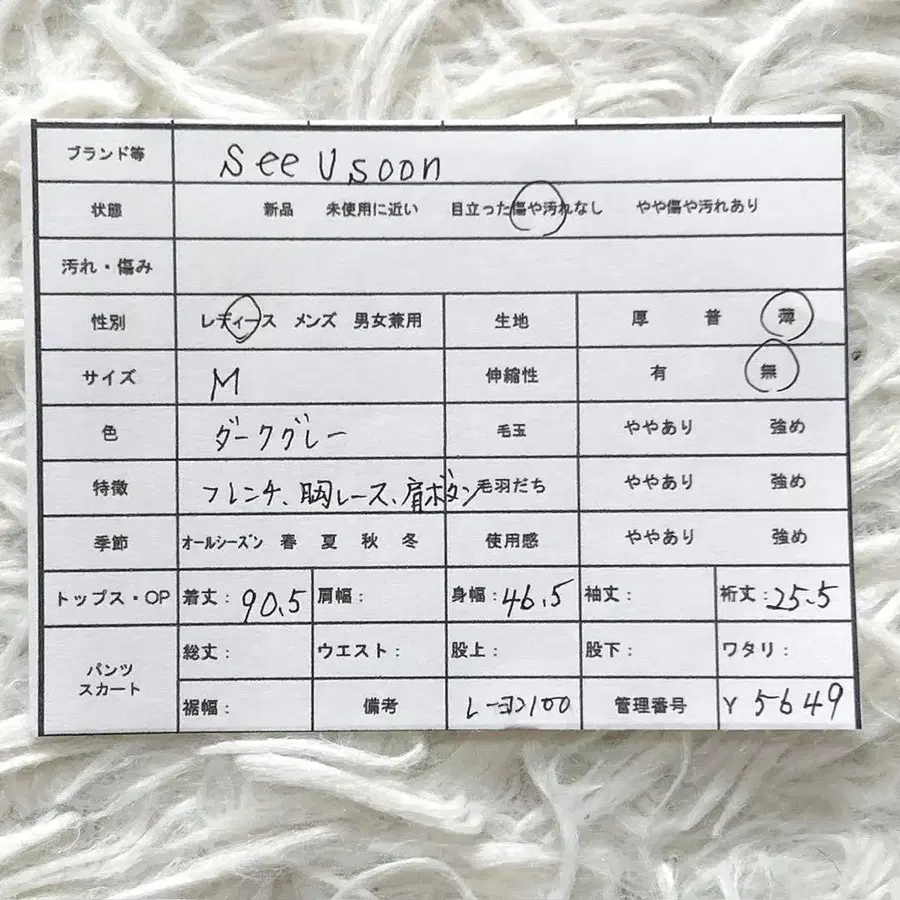 ブランド等 See U soon
状態 新品 未使用に近い 目立った傷や汚れなし やや傷や汚れあり
汚れ・傷み
性別 レディース メンズ 男女兼用 生地 厚 普 薄
サイズ M 伸縮性 有 無
色 ダークグレー 毛玉 ややあり 強め
特徴 フレンチ、胸レース、肩ボタン 毛羽だち ややあり 強め
季節 オールシーズン 春 夏 秋 冬 使用感 ややあり 強め
トップス・OP 着丈：90.5 肩幅： 身幅：46.5 袖丈： 裄丈：25.5
パンツ スカート 総丈： ウエスト： 股上： 股下： ワタリ：
裾幅： 備考 レーヨン100 管理番号 Y 5649